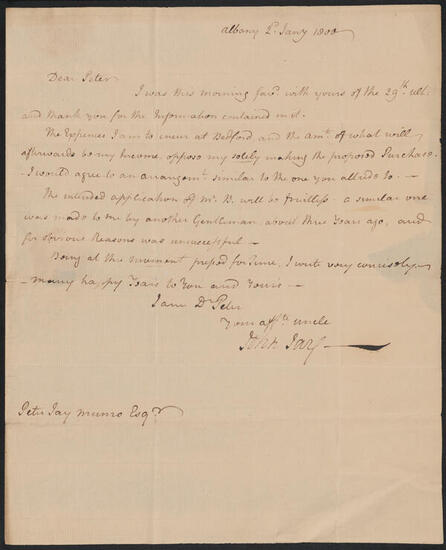 Albany 2d. Jany 1800
Dear Peter
I was this morning favd. with yours of the 29th. ult.
and thank you for the Information contained in it.
The Expences I am to incur at Bedford and the amt. of what will
afterwards be my Income, oppose my solely making the proposed Purchase.
I would agree to an arrangemt. similar to the one you allude to. —
The intended application of Mr. B. will be fruitless - a similar one
was made to me by another Gentleman about three Years ago, and
for obvious Reasons was unsuccessful —
Being at this moment pressed for Time, I write very concisely —
— many happy Years to You and Yours —
I am Dr. Peter
Your afft. uncle
John Jay
Peter Jay Munro Esqr.